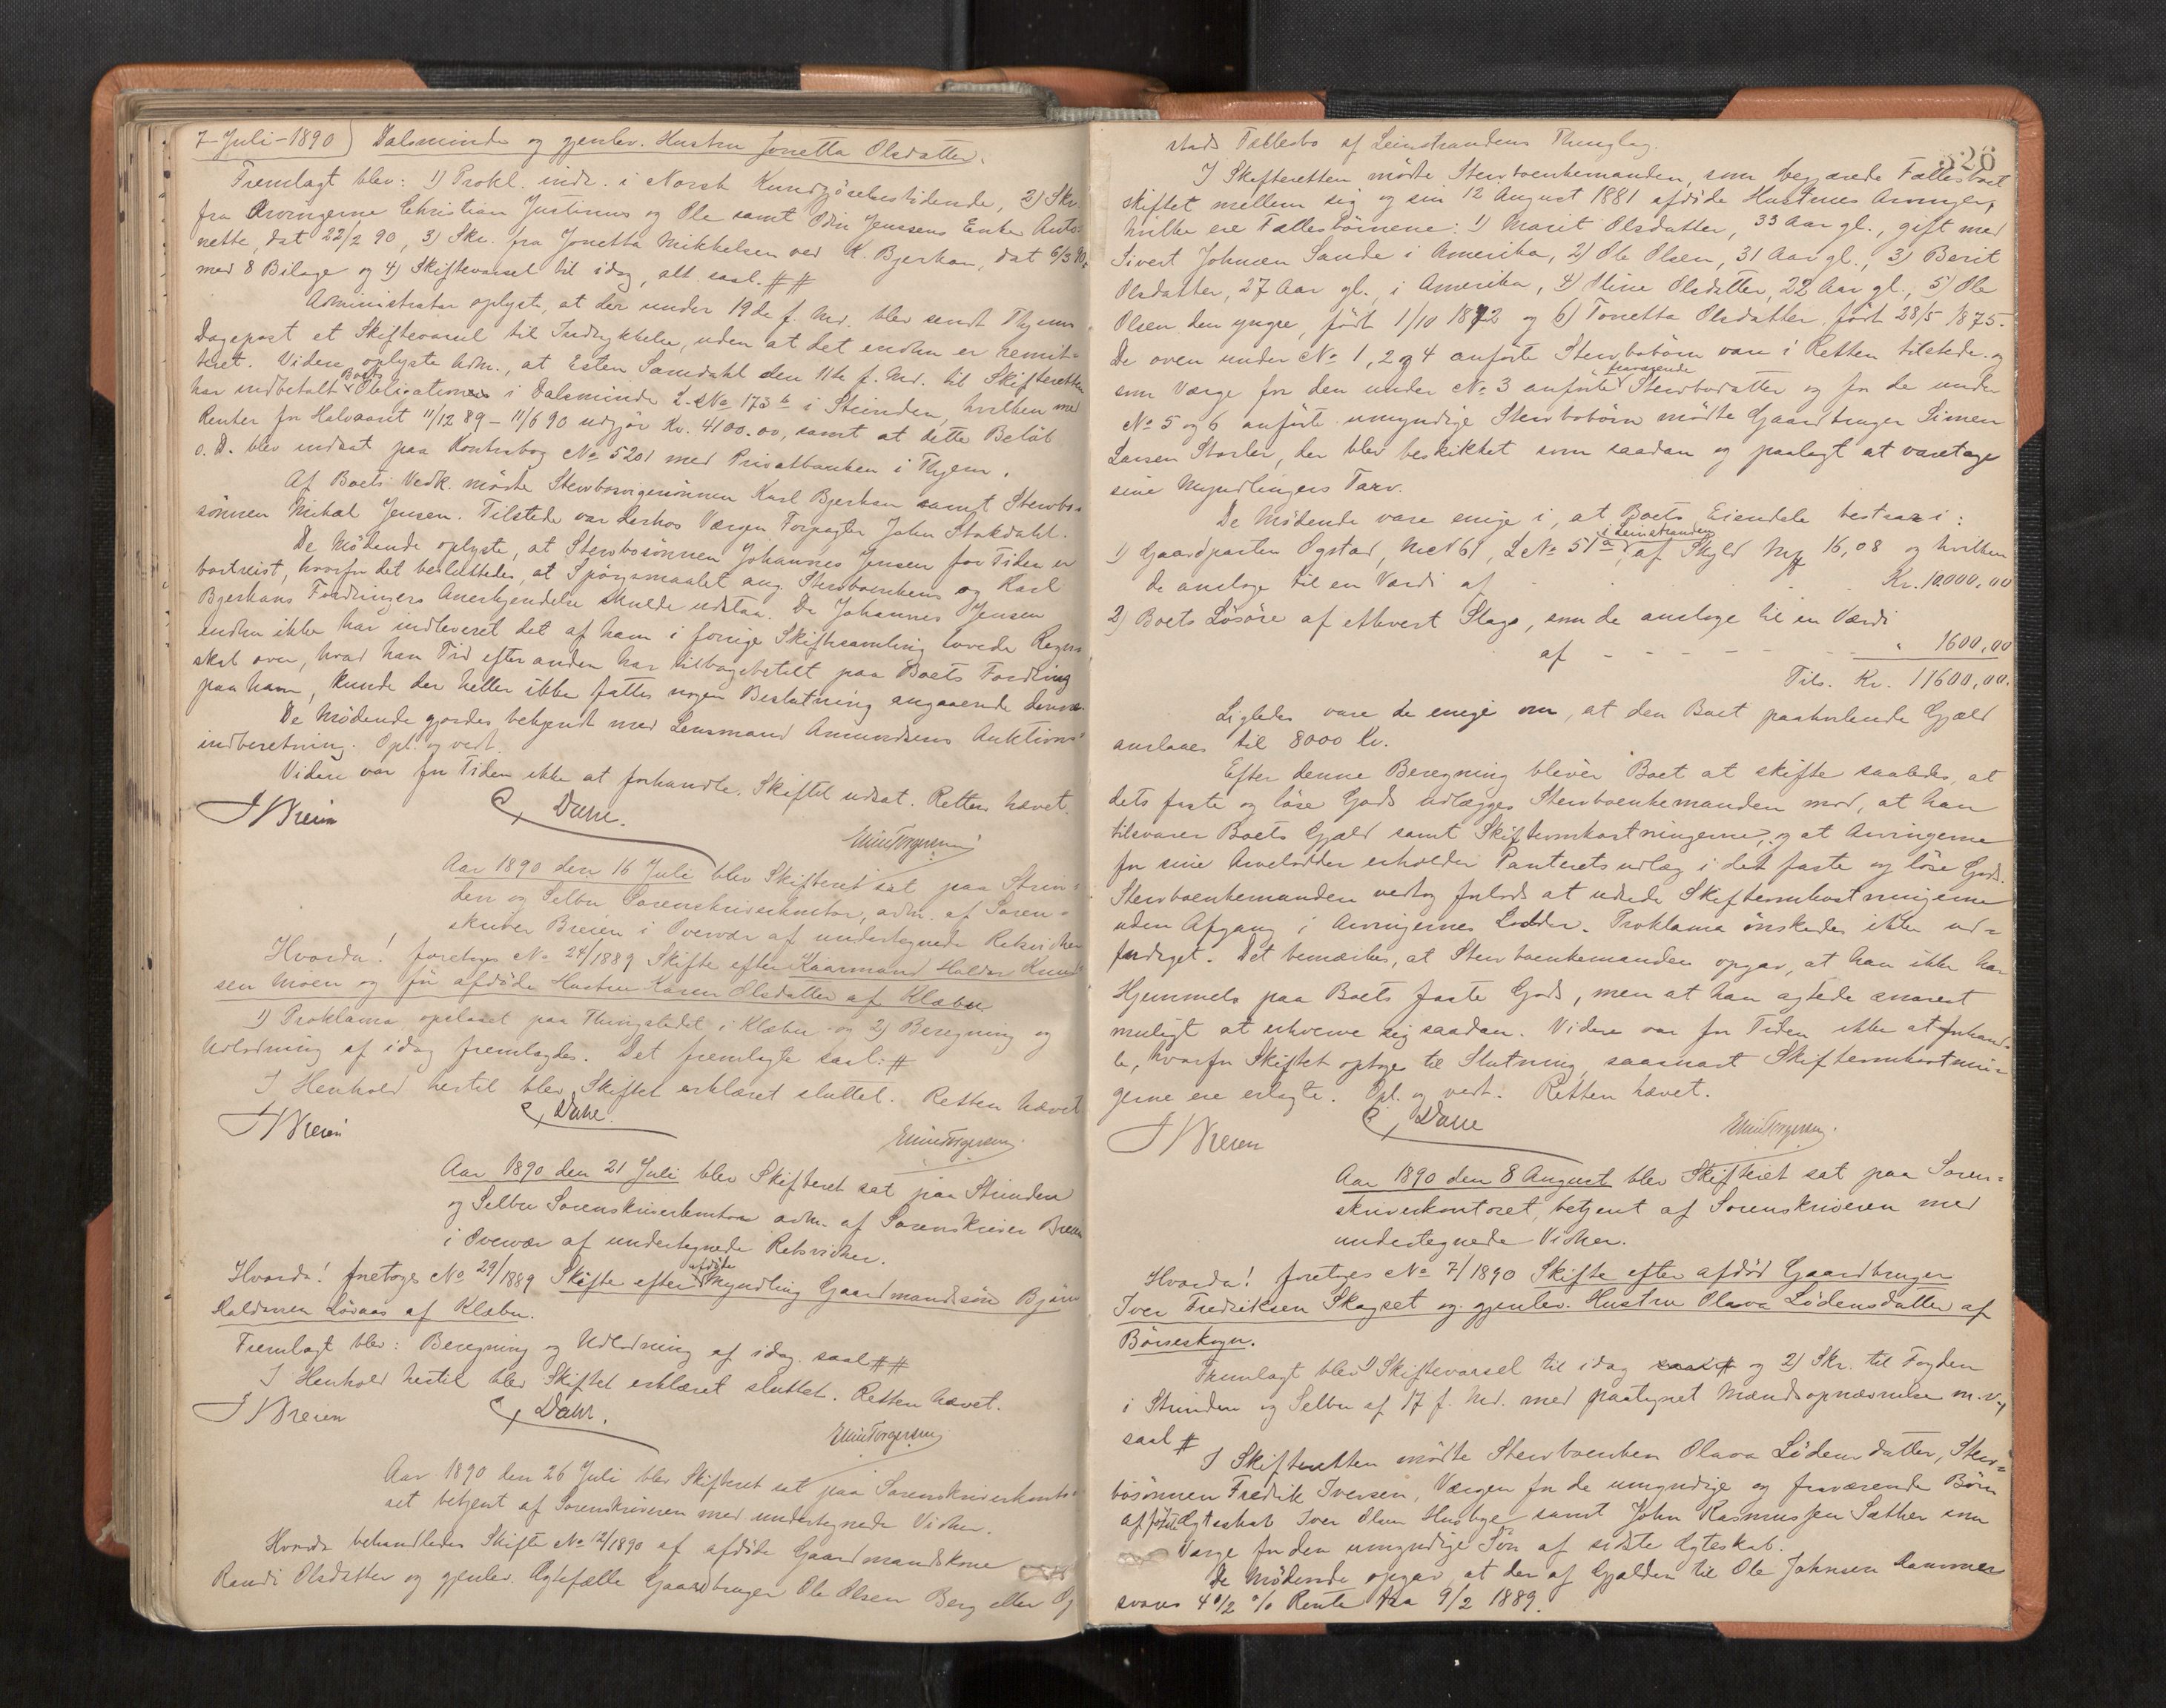 7 Juli - 1890) Dalsminde og gjenlev. Hustru Jonetta Olsdatter.
Fremlagt blev: 1) Prokl. indr. i Norsk Kundgjörelsestidende, 2) Skr.
fra Arvingerne Christian Justinus og Ole samt Odin Jenssens Enke Anto-
nette, dat 22/2 90, 3) Skr. fra Jonetta Mikkelsen ved K. Bjerkan, dat 6/3 90,
med 8 Bilage og 4) Skiftevarsel til idag, alt saal. ##
Administrator oplyste, at der under 19de f. Md. blev sendt Thjems
Dagspost et Skiftevarsel til Indrykkelse, uden at det endnu er remit-
teret. Videre oplyste Adm., at Esten Samdahl den 11te f. Md. til Skifteretten
har indbetalt Boets Obligationer i Dalsminde L. No 173 b i Strinden, hvilken med
Renter for Halvaaret 11/12 89 - 11/6 90 udgjör Kr. 4100.00, samt at dette Belöb
s. D. blev indsat paa Kontrabog No 5201 med Privatbanken i Thjem.
Af Boets Vedk. mödte Stervbosvigersönnen Karl Bjerkan samt Stervbo-
sönnen Mikal Jensen. Tilstede var derhos Værgen Forpagter John Stokdahl.
De Mödende oplyste, at Stervbosönnen Johannes Jensen for Tiden er
bortreist, hvorfor det besluttedes, at Spörgsmaalet ang. Stervboenkens og Karl
Bjerkans Fordringers Anerkjendelse skulde udstaa. Da Johannes Jensen
endnu ikke har indleveret det af ham i forrige Skiftesamling lovede Regn-
skab over, hvad han Tid efter anden har tilbagebetalt paa Boets Fordring
paa ham, kunde der heller ikke fattes nogen Beslutning angaaende denne.
De Mödende gjordes bekjendt med Lensmand Amundsens Auktions-
indberetning. Opl. og vedt.
Videre var for Tiden ikke at forhandle. Skiftet udsat. Retten hævet.
Breien C. Dahl. Emil Torgersen
Aar 1890 den 16 Juli blev Skifteret sat paa Strin-
den og Selbu Sorenskriverkontor, adm. af Soren-
skriver Breien i Overvær af undertegnede Retsvidner
Hvorda! foretoges No 24/1889 Skifte efter Kaarmand Haldor Knud-
sen Moen og för afdöde Hustru Karen Olsdatter af Klæbu
1) Proklama oplæst paa Thingstedet i Klæbu og 2) Beregning og
Udlodning af idag fremlagdes. Det fremlagte saal: #
I Henhold hertil blev Skiftet erklæret sluttet. Retten hævet
Breien C. Dahl. Emil Torgersen
Aar 1890 den 21 Juli blev Skifteret sat paa Strinden
og Selbu Sorenskriverkontor adm. af Sorenskriver Breien
i Overvær af undertegnede Retsvidner.
Hvorda! foretoges No 29/1889 Skifte efter afdöde Myndling Gaardmandssön Björn
Haldorsen Lövaas af Klæbu.
Fremlagt blev: Beregning og Udlodning af idag. saal ##
I Henhold hertil blev Skiftet erklæret sluttet. Retten hævet.
Breien C. Dahl. Emil Torgersen
Aar 1890 den 26 Juli blev Skifteret sat paa Sorenskriverkonto-
ret betjent af Sorenskriveren med undertegnede Vidner.
Hvorda behandledes Skifte No 12/1890 af afdöde Gaardmandskone
Randi Olsdatter og gjenlev. Ægtefælle Gaardbruger Ole Olsen Berg eller Og
stads Fællesbo af Leinstrandens Thinglag.
326
I Skifteretten mödte Stervboenkemanden, som begjærede Fællesboet
skiftet mellem sig og sin 12 August 1881 afdöde Hustrues Arvinger,
hvilke ere Fællesbörnene: 1) Marit Olsdatter, 33 Aar gl., gift med
Sivert Johnsen Sande i Amerika, 2) Ole Olsen, 31 Aar gl., 3) Berit
Olsdatter, 27 Aar gl., i Amerika, 4) Stine Olsdatter, 22 Aar gl., 5) Ole
Olsen den yngre, födt 1/10 1872 og 6) Tonetta Olsdatter födt 28/5 1875.
De oven under No 1, 2 og 4 anförte Stervbobörn vare i Retten tilstede og
som Værge for den under No 3 anförte fraværende Stervbodatter og for de under
No 5 og 6 anförte umyndige Stervbobörn mödte Gaardbruger Simen
Larsen Storler, der blev beskikket som saadan og paalagt at varetage
sine Myndlingers Tarv.
De Mödende vare enige i, at Boets Eiendele bestaar i:
1) Gaardparten Ogstad, M No 61, L No 51 a i Leinstranden, af Skyld M# 16,08 og hvilken
de anslog til en Værdi af - - - Kr. 10.000,00
2) Boets Lösöre af ethvert Slags, som de anslog til en Værdi
af - - - - - - - " 1600,00
Tils. Kr. 11600,00.
Ligeledes vare de enige om, at den Boet paahvilende Gjæld
anslaaes til 8000 Kr.
Efter denne Beregning bliver Boet at skifte saaledes, at
dets faste og löse Gods udlægges Stervboenkemanden mod, at han
tilsvarer Boets Gjæld samt Skifteomkostningerne, og at Arvingerne
for sine Arvelodder erholder Panteretsudlæg i det faste og löse Gods.
Stervboenkemanden vedtog forlods at udrede Skifteomkostningerne
uden Afgang i Arvingernes Lodder. Proklama önskedes ikke ud-
færdiget. Det bemærkes, at Stervboenkemanden opgav, at han ikke har
Hjemmels paa Boets faste Gods, men at han agtede snarest
muligt at erhverve sig saadan. Videre var for Tiden ikke at forhand-
le, hvorfor Skiftet optoges til Slutning, saasnart Skifteomkostnin-
gerne ere erlagte. Opl. og vedt. Retten hævet.
Breien C. Dahl Emil Torgersen.
Aar 1890 den 8 August blev Skifteret sat paa Soren-
skriverkontoret, betjent af Sorenskriveren med
undertegnede Vidner.
Hvorda! foretoges No 7/1890 Skifte efter afdöd Gaardbruger
Iver Fredriksen Skagset og gjenlev. Hustru Olava Lödensdatter af
Börseskogn.
Fremlagt blev 1) Skiftevarsel til idag og 2) Skr. til Fogden
i Strinden og Selbu af 17 f. Md. med paategnet Mandsopnævnelse m. v.,
saal #
I Skifteretten mödte Stervboenken Olava Lödensdatter, Sterv-
bosönnen Fredrik Iversen, Værgen for de umyndige og fraværende Börn
af förste Ægteskab Iver Olsen Husbye samt John Rasmussen Sæther som
Værge for den umyndige Sön af sidste Ægteskab.
De Mödende opgav, at der af Gjælden til Ole Johnsen Hammer
svares 4 1/2 % Rente fra 9/2 1889.